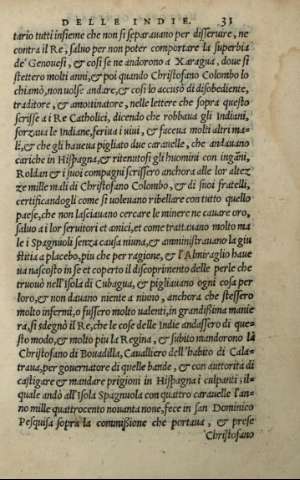 DELLE INDIE. 31
tario tutti insieme che non si separauano per disseruire, ne
contra il Re, saluo per non poter comportare la superbia
de' Genouesi, & cosi se ne andorono a Xaragua, doue si
stettero molti anni, & poi quando Christofano Colombo lo
chiamò, non uolse andare, & cosi lo accusò di disobediente,
traditore, & amotinatore, nelle lettere che sopra questo
scrisse a i Re Catholici, dicendo che robbaua gli Indiani,
forzaua le Indiane, feriua i uiui, & faceua molti altri ma
li, & che gli haueua pigliato due carauelle, che andauano
cariche in Hispagna, & ritenutosi gli huomini con ingāni,
Roldan & i suoi compagni scrissero anchora alle lor altez
ze mille mali di Christofano Colombo, & di suoi fratelli,
certificandogli come si uoleuano ribellare con tutto quello
paese, che non lasciauano cercare le minere ne cauare oro,
saluo a i lor seruitori et amici, et come trattauano molto ma
le i Spagnuoli senza causa niuna, & amministrauano la giu
stitia a placebo, piu che per ragione, & l'Almiraglio haue
ua nascosto in se et coperto il discoprimento delle perle che
truouò nell'isola di Cubagua, & pigliauano ogni cosa per
loro, & non dauano niente a niuno, anchora che stessero
molto infermi, o fussero molto ualenti, in grandissima manie
ra, si sdegnò il Re, che le cose delle Indie andassero di que-
sto modo, & molto piu la Regina, & subito mandorono là
Christofano di Bouadilla, Caualliero dell'habito di Cala-
traua, per gouernatore di quelle bande, & con auttorità di
castigare & mandare prigioni in Hispagna i culpanti, il-
quale andò all'Isola Spagnuola con quattro carauelle l'an-
no mille quattrocento nouanta none, fece in san Dominico
Pesquisa sopra la commissione che portaua, & prese
Christofano